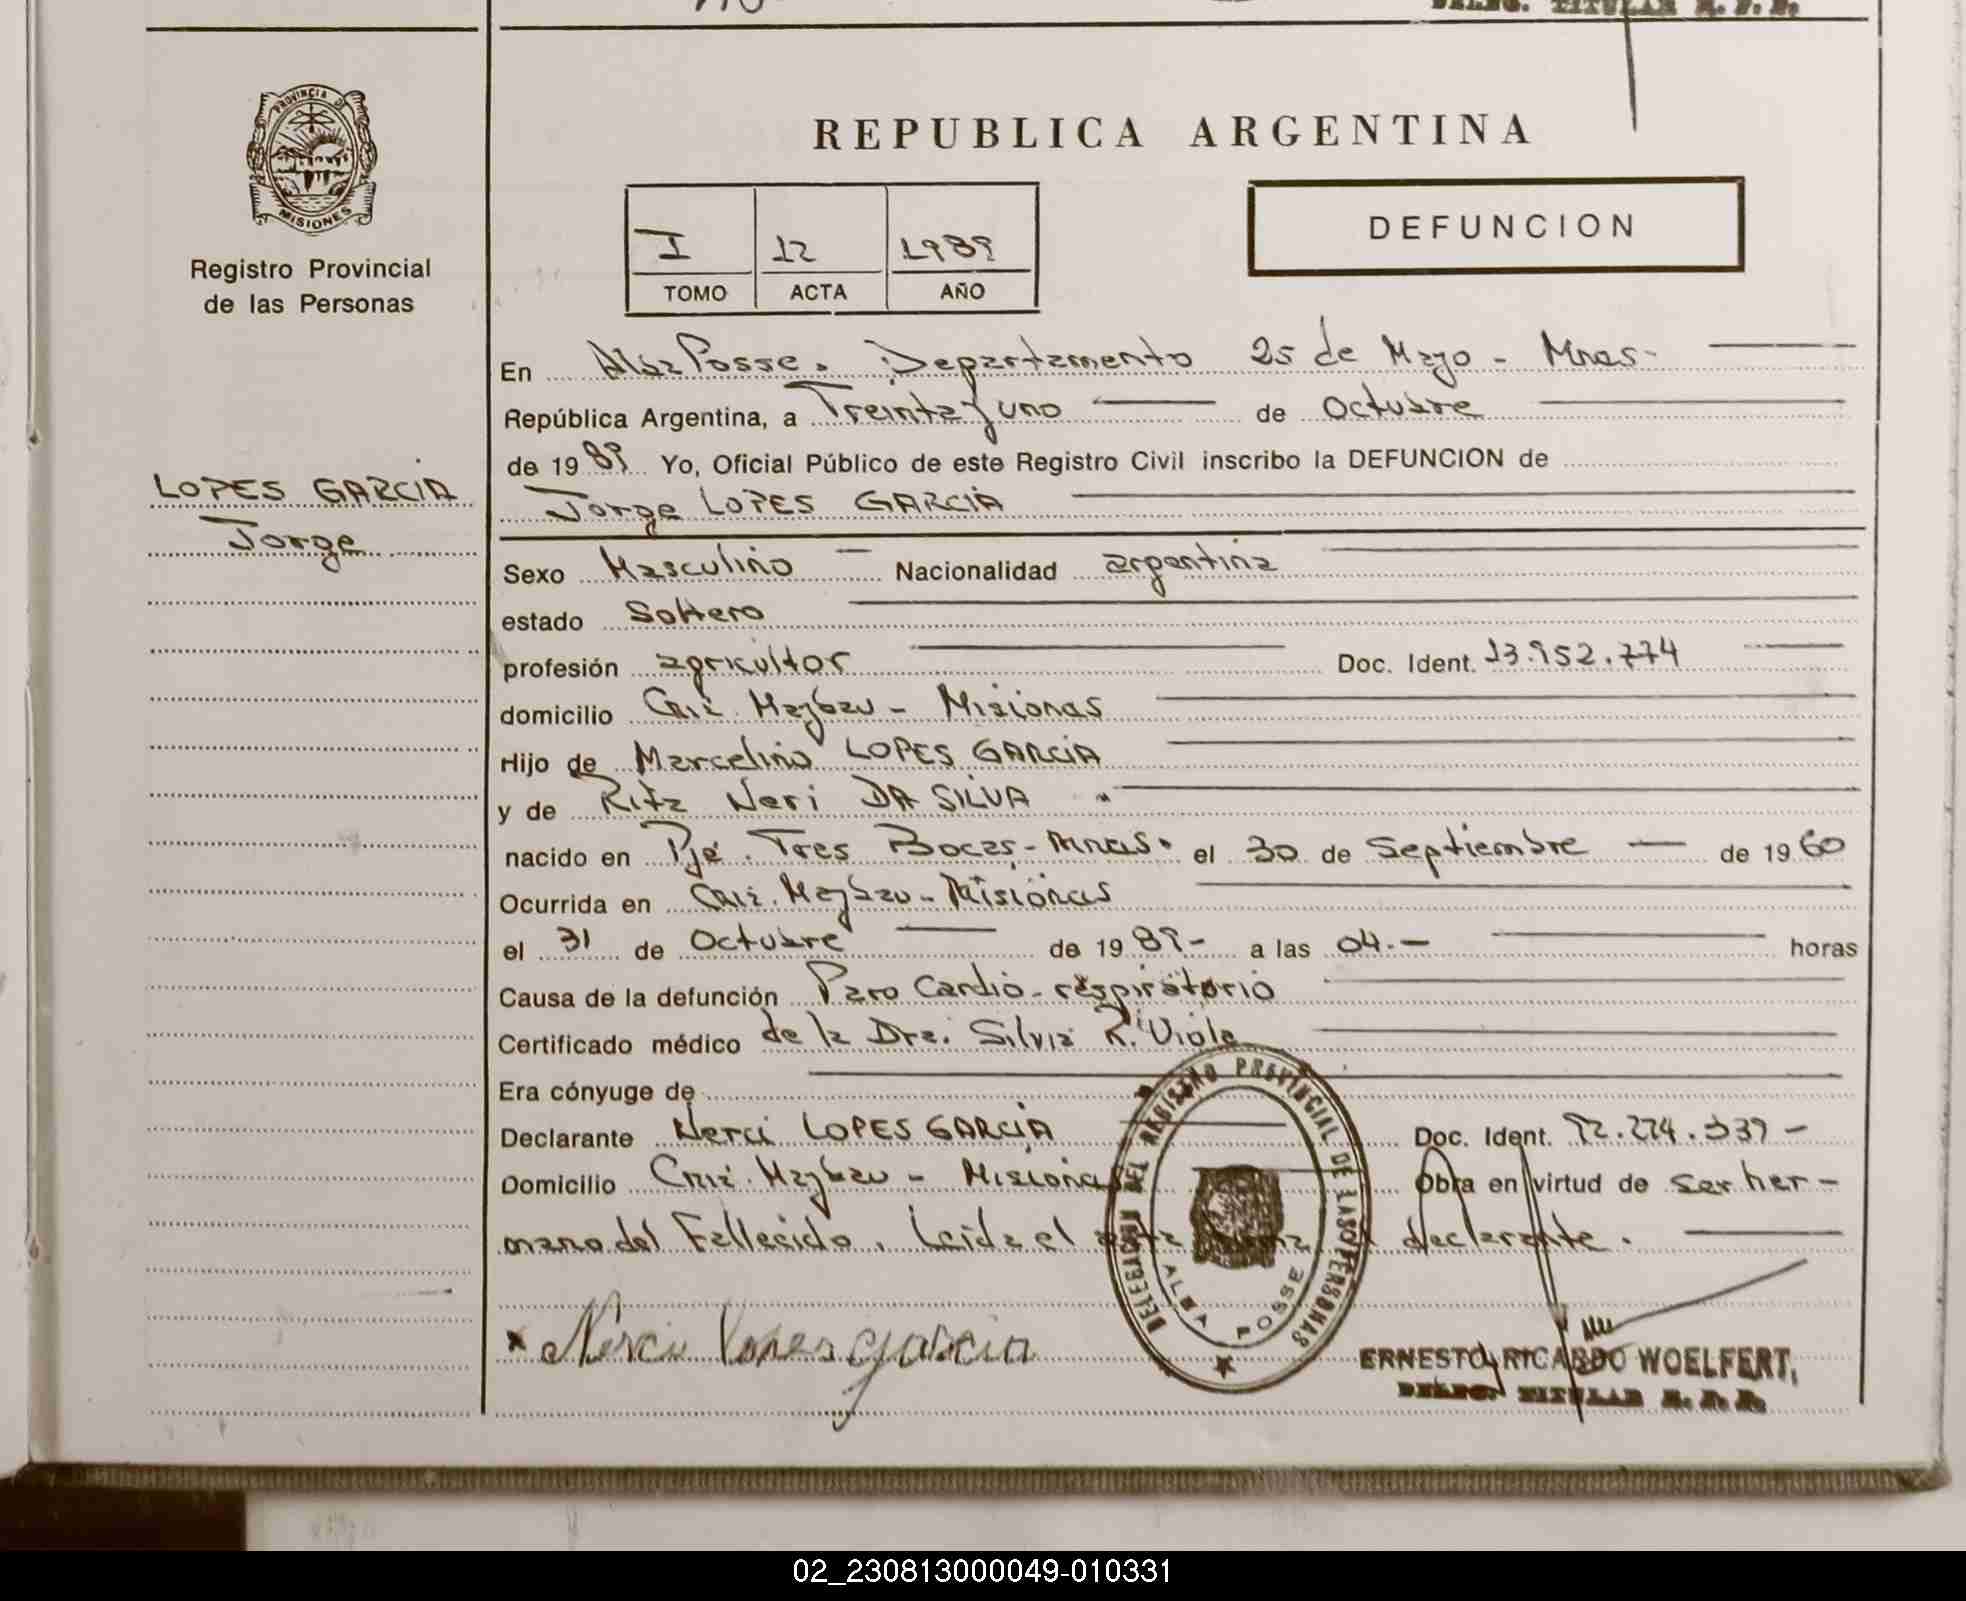 PROVINCIA DE
MISIONES
Registro Provincial
de las Personas
LOPES GARCIA
Jorge
REPUBLICA ARGENTINA
I 12 1989
TOMO ACTA AÑO
DEFUNCION
En Alba Posse. Departamento 25 de Mayo - Mnes-
República Argentina, a Treinta y uno de Octubre
de 1989 Yo, Oficial Público de este Registro Civil inscribo la DEFUNCION de
Jorge LOPES GARCIA
Sexo Masculino Nacionalidad argentina
estado Soltero
profesión agricultor Doc. Ident. 13.952.774
domicilio Maybau - Misiones
Hijo de Marcelino LOPES GARCIA
y de Rita Neri DA SILVA
nacido en Pje. Tres Bocas - Mnes. el 30 de Septiembre de 1960
Ocurrida en Maybau - Misiones
el 31 de Octubre de 1989- a las 04.- horas
Causa de la defunción Paro Cardio-respiratorio
Certificado médico de la Dra. Silvia R. Viola
Era cónyuge de
Declarante Nerci LOPES GARCIA Doc. Ident. 92.274.339-
Domicilio Maybau - Misiones Obra en virtud de ser her-
mano del Fallecido. Leída el acta declarante.
DELEGACION DEL REGISTRO PROVINCIAL DE LAS PERSONAS
ALBA POSSE
Nerci lopes garcia
ERNESTO RICARDO WOELFERT,
DELEG. TITULAR R. P. P.
02_230813000049-010331